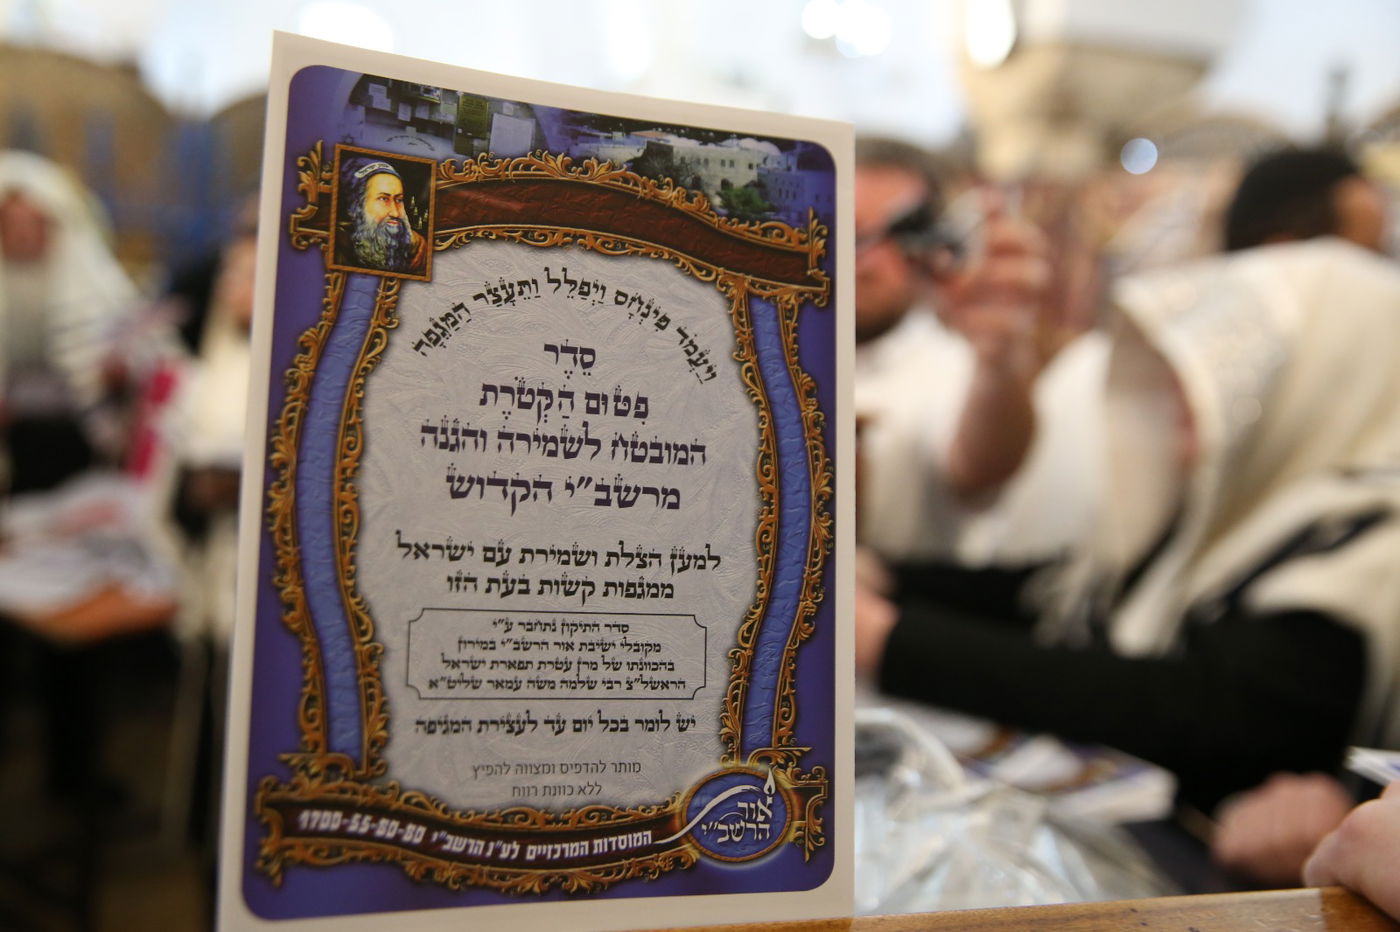 וַיַּעֲמֹד פִּינְחָס וַיְפַלֵּל וַתֵּעָצַר הַמַּגֵּפָה
סֵדֶר
פִּטּוּם הַקְּטֹרֶת
המובטח לשמירה והגנה
מרשב"י הקדוש
למען הצלת ושמירת עם ישראל
ממגפות קשות בעת הזו
סדר התיקון נתחבר ע"י
מקובלי ישיבת אור הרשב"י במירון
בהכוונתו של מרן עטרת תפארת ישראל
הראשל"צ רבי שלמה משה עמאר שליט"א
יש לומר בכל יום עד לעצירת המגיפה
מותר להדפיס ומצווה להפיץ
ללא כוונת רווח
אור
הרשב"י
המוסדות המרכזיים לע"נ הרשב"י 1700-55-80-80